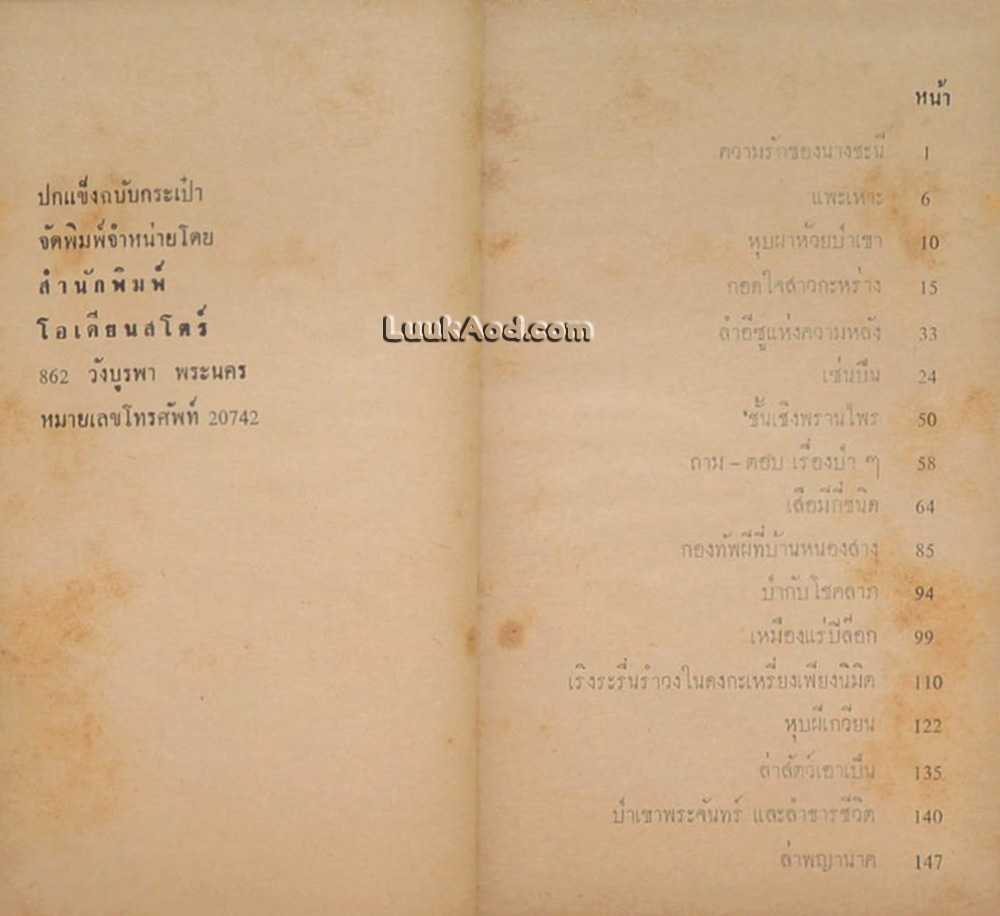 ปกแข็งฉบับกระเป๋า
จัดพิมพ์จำหน่ายโดย
สำนักพิมพ์
โอเดียนสโตร์
862 วังบูรพา พระนคร
หมายเลขโทรศัพท์ 20742
LuukAod.com
หน้า
ความรักของนางชะนี 1
แพะเหาะ 6
หุบผาห้วยป่าเขา 10
กอดใจสาวกะหร่าง 15
ลำอีซูแห่งความหลัง 33
เซ่นปืน 24
ชั้นเชิงพรานไพร 50
ถาม – ตอบ เรื่องป่า ๆ 58
เสือมีกี่ชนิด 64
กองทัพผีที่บ้านหนองสาง 85
ป่ากับโชคลาภ 94
เหมืองแร่ปิล๊อก 99
เริงระรื่นรำวงในดงกะเหรี่ยงเพียงนิมิต 110
หุบผีเกวียน 122
ล่าสัตว์เอาเป็น 135
ป่าเขาพระจันทร์ และลำธารชีวิต 140
ล่าพญานาค 147